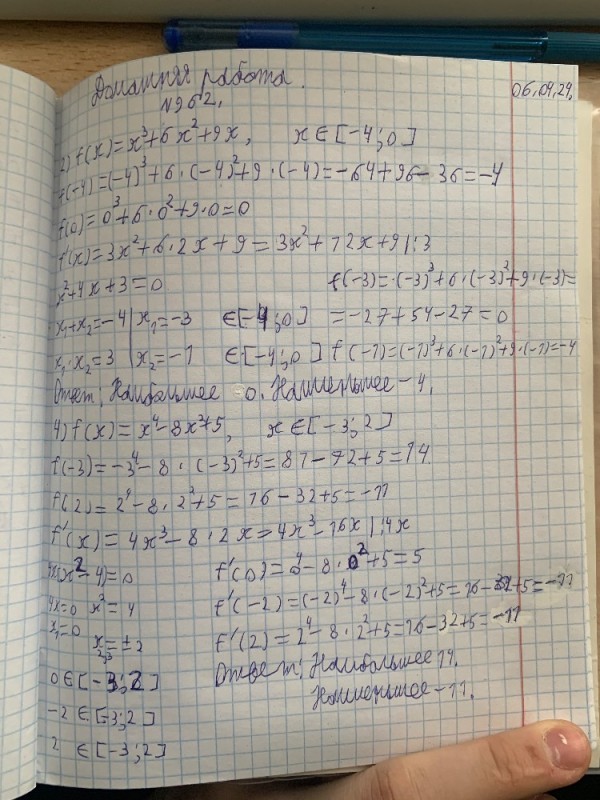 Домашняя работа. 06.09.29.
№962.
2) f(x)=x³+6x²+9x, x∈[-4;0]
f(-4)=(-4)³+6·(-4)²+9·(-4)=-64+96-36=-4
f(0)=0³+6·0²+9·0=0
f'(x)=3x²+6·2x+9=3x²+12x+9|:3
x²+4x+3=0 f(-3)=(-3)³+6·(-3)²+9·(-3)=
x₁+x₂=-4|x₁=-3 ∈[-4;0] =-27+54-27=0
x₁·x₂=3 |x₂=-1 ∈[-4;0] f(-1)=(-1)³+6·(-1)²+9·(-1)=-4
Ответ: Наибольшее 0. Наименьшее -4.
4) f(x)=x⁴-8x²+5, x∈[-3;2]
f(-3)=-3⁴-8·(-3)²+5=81-72+5=14
f(2)=2⁴-8·2²+5=16-32+5=-11
f'(x)=4x³-8·2x=4x³-16x|:4x
4x(x²-4)=0 f'(0)=0⁴-8·0²+5=5
4x=0 x²=4 f'(-2)=(-2)⁴-8·(-2)²+5=16-32+5=-11
x₁=0 x₂,₃=±2 f'(2)=2⁴-8·2²+5=16-32+5=-11
0∈[-3;2] Ответ: Наибольшее 14.
-2∈[-3;2] Наименьшее -11.
2 ∈[-3;2]